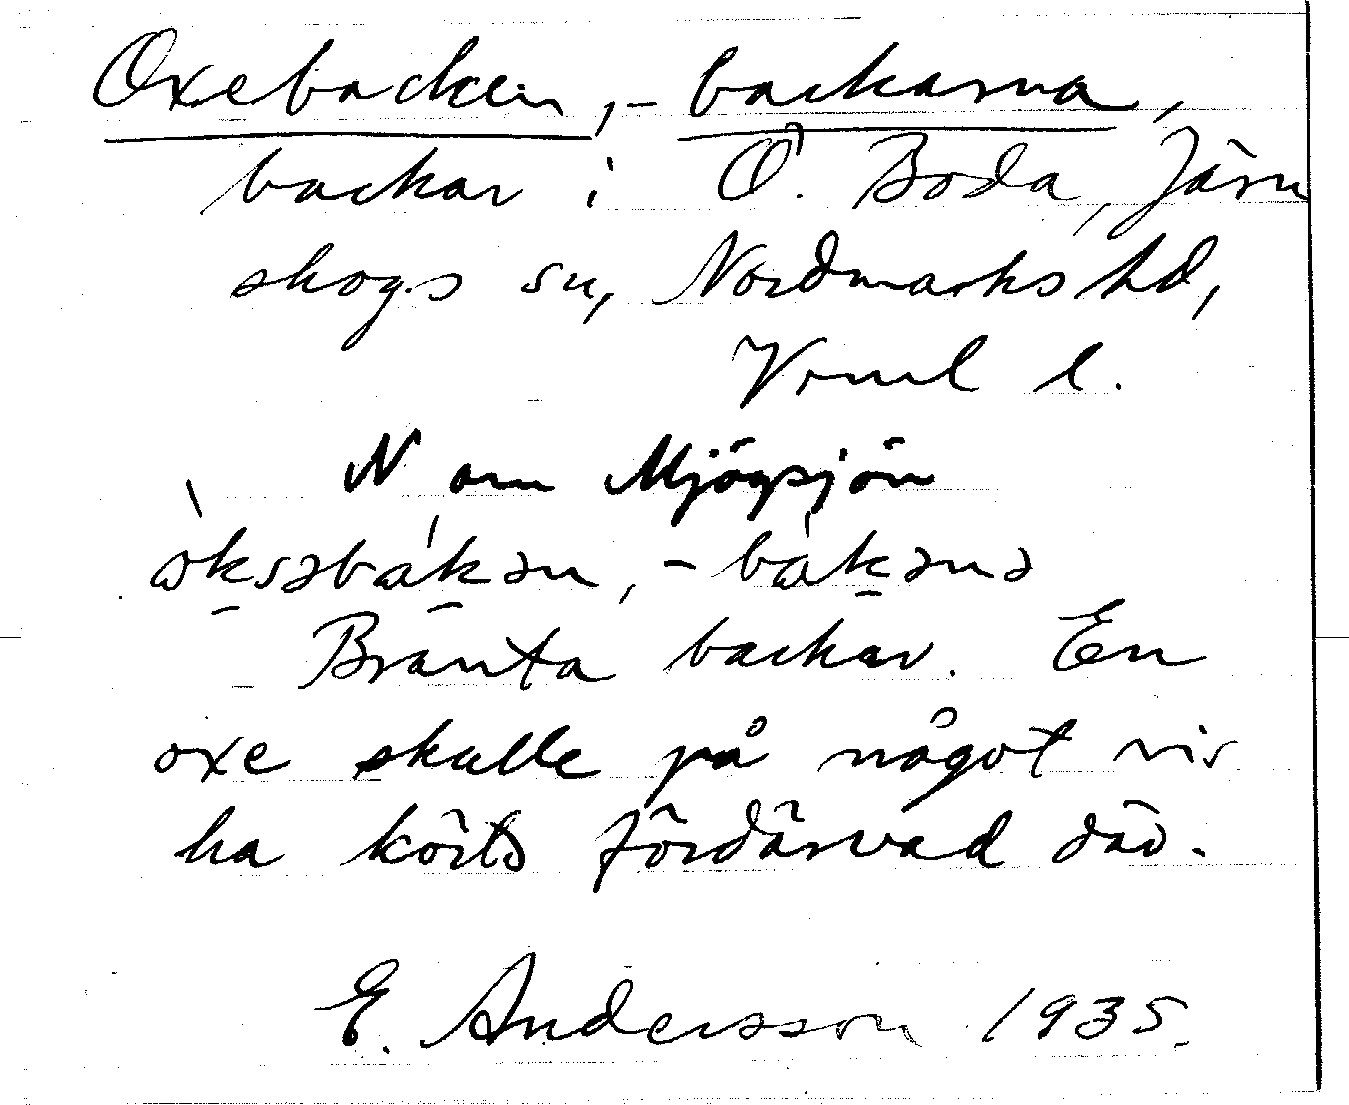 Oxebacken, -backarna,
backar i Ö. Boda, Järn
skogs sn, Nordmarks hd,
Vrml l.
N om Mjögsjön
òksəbákən, -bákənə
Branta backar. En
oxe skulle på något vis
ha körts fördärvad där.
E. Andersson 1935.